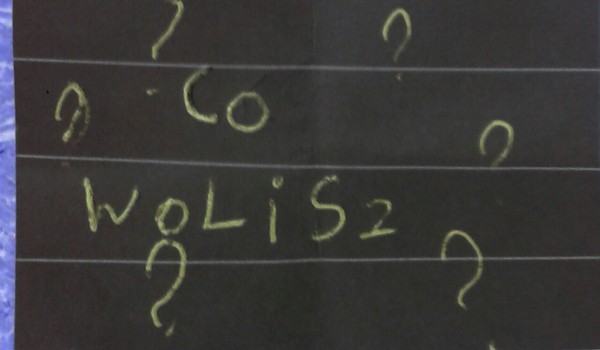 ? ?
? Co ?
WOLiSz
? ?